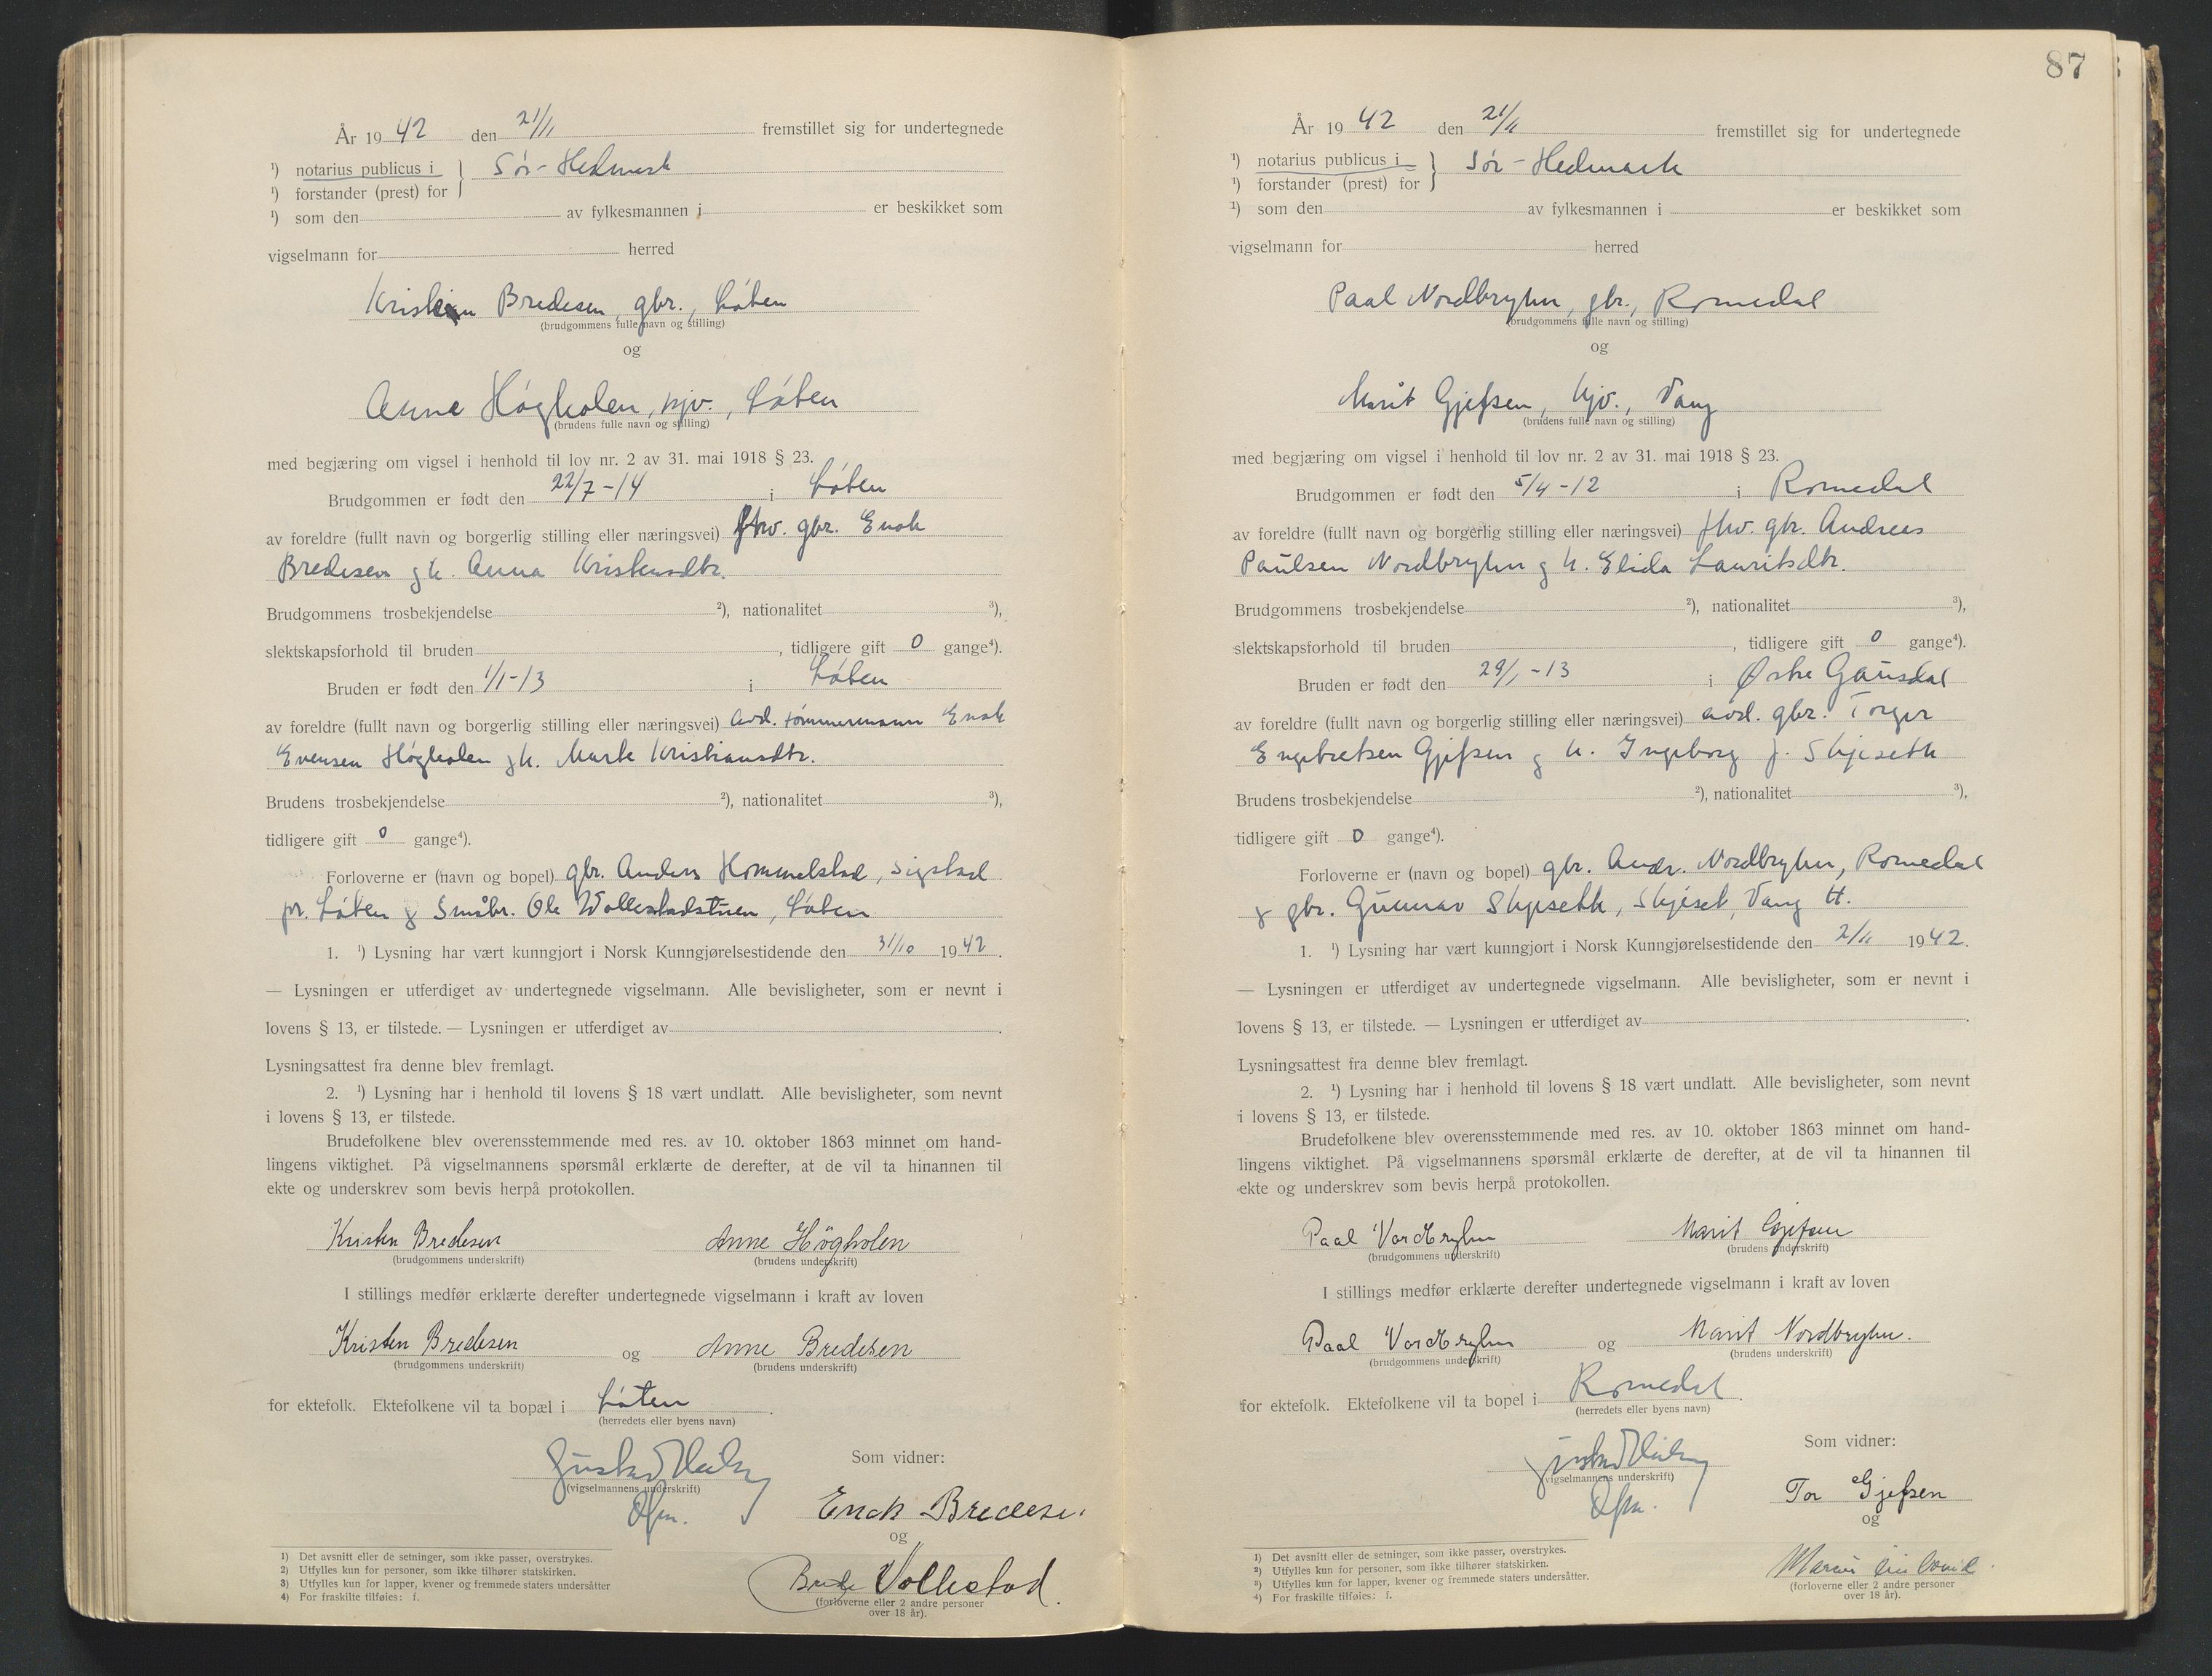 År 1942 den 21/11 fremstillet sig for undertegnede
¹) notarius publicus i } Sør-Hedmark
¹) forstander (prest) for
¹) som den av fylkesmannen i er beskikket som
vigselmann for herred
Kristen Bredesen, gbr., Løten
(brudgommens fulle navn og stilling)
og
Anne Høgholen, hjv., Løten
(brudens fulle navn og stilling)
med begjæring om vigsel i henhold til lov nr. 2 av 31. mai 1918 § 23.
Brudgommen er født den 22/7-14 i Løten
av foreldre (fullt navn og borgerlig stilling eller næringsvei) fhv. gbr. Enok
Bredesen g h. Anna Kristensdtr.
Brudgommens trosbekjendelse ²), nationalitet ³),
slektskapsforhold til bruden , tidligere gift 0 gange⁴).
Bruden er født den 1/1-13 i Løten
av foreldre (fullt navn og borgerlig stilling eller næringsvei) avd. tømmermann Enok
Evensen Høgholen g h. Marte Kristiansdtr.
Brudens trosbekjendelse ²), nationalitet ³),
tidligere gift 0 gange⁴).
Forloverne er (navn og bopel) gbr. Anders Hommelstad, Sigstad
pr. Løten g Småbr. Ole Wollestadstuen, Løten
1. ¹) Lysning har vært kunngjort i Norsk Kunngjørelsestidende den 31/10 1942.
— Lysningen er utferdiget av undertegnede vigselmann. Alle bevisligheter, som er nevnt i
lovens § 13, er tilstede. — Lysningen er utferdiget av .
Lysningsattest fra denne blev fremlagt.
2. ¹) Lysning har i henhold til lovens § 18 vært undlatt. Alle bevisligheter, som nevnt
i lovens § 13, er tilstede.
Brudefolkene blev overensstemmende med res. av 10. oktober 1863 minnet om hand-
lingens viktighet. På vigselmannens spørsmål erklærte de derefter, at de vil ta hinannen til
ekte og underskrev som bevis herpå protokollen.
Kristen Bredesen Anne Högholen
(brudgommens underskrift) (brudens underskrift)
I stillings medfør erklærte derefter undertegnede vigselmann i kraft av loven
Kristen Bredesen og Anne Bredesen
(brudgommens underskrift) (brudens underskrift)
for ektefolk. Ektefolkene vil ta bopæl i Løten.
(herredets eller byens navn)
Som vidner:
(vigselmannens underskrift)
Enok Bredese.
og
Volkestad.
(forloverne eller 2 andre personer
over 18 år).
1) Det avsnitt eller de setninger, som ikke passer, overstrykes.
2) Utfylles kun for personer, som ikke tilhører statskirken.
3) Utfylles kun for lapper, kvener og fremmede staters undersåtter
4) For fraskilte tilføies: f.
87
År 1942 den 21/11 fremstillet sig for undertegnede
¹) notarius publicus i } Sør-Hedmark
¹) forstander (prest) for
¹) som den av fylkesmannen i er beskikket som
vigselmann for herred
Paal Nordbryhn, gbr., Romedal
(brudgommens fulle navn og stilling)
og
Marit Gjefsen, hjv., Vang
(brudens fulle navn og stilling)
med begjæring om vigsel i henhold til lov nr. 2 av 31. mai 1918 § 23.
Brudgommen er født den 5/4-12 i Romedal
av foreldre (fullt navn og borgerlig stilling eller næringsvei) fhv. gbr. Andreas
Paulsen Nordbryhn g h. Elida Lauritsdtr.
Brudgommens trosbekjendelse ²), nationalitet ³),
slektskapsforhold til bruden , tidligere gift 0 gange⁴).
Bruden er født den 29/1-13 i Østre Gausdal
av foreldre (fullt navn og borgerlig stilling eller næringsvei) avd. gbr. Torger
Engebretsen Gjefsen g h. Ingeborg f. Skjeseth
Brudens trosbekjendelse ²), nationalitet ³),
tidligere gift 0 gange⁴).
Forloverne er (navn og bopel) gbr. Andr. Nordbryhn, Romedal
g gbr. Gunnar Skjeseth, Skjeset, Vang H.
1. ¹) Lysning har vært kunngjort i Norsk Kunngjørelsestidende den 2/11 1942.
— Lysningen er utferdiget av undertegnede vigselmann. Alle bevisligheter, som er nevnt i
lovens § 13, er tilstede. — Lysningen er utferdiget av .
Lysningsattest fra denne blev fremlagt.
2. ¹) Lysning har i henhold til lovens § 18 vært undlatt. Alle bevisligheter, som nevnt
i lovens § 13, er tilstede.
Brudefolkene blev overensstemmende med res. av 10. oktober 1863 minnet om hand-
lingens viktighet. På vigselmannens spørsmål erklærte de derefter, at de vil ta hinannen til
ekte og underskrev som bevis herpå protokollen.
Paal Nordbryhn Marit Gjefsen
(brudgommens underskrift) (brudens underskrift)
I stillings medfør erklærte derefter undertegnede vigselmann i kraft av loven
Paal Nordbryhn og Marit Nordbryhn.
(brudgommens underskrift) (brudens underskrift)
for ektefolk. Ektefolkene vil ta bopel i Romedal.
(herredets eller byens navn)
Som vidner:
(vigselmannens underskrift)
Tor Gjefsen
og
(forloverne eller 2 andre personer
over 18 år).
1) Det avsnitt eller de setninger, som ikke passer, overstrykes.
2) Utfylles kun for personer, som ikke tilhører statskirken.
3) Utfylles kun for lapper, kvener og fremmede staters undersåtter.
4) For fraskilte tilføies: f.